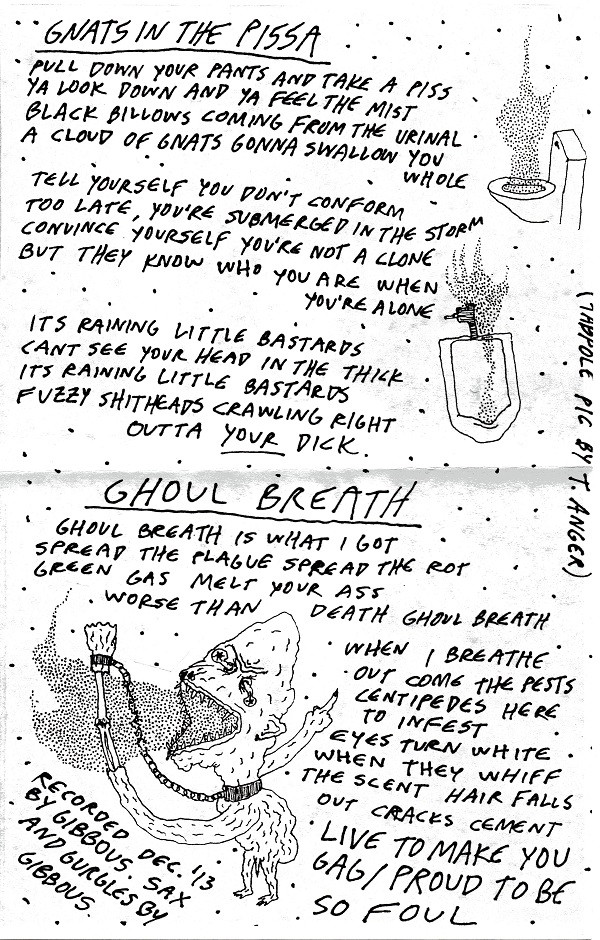 GNATS IN THE PISSA
PULL DOWN YOUR PANTS AND TAKE A PISS
YA LOOK DOWN AND YA FEEL THE MIST
BLACK BILLOWS COMING FROM THE URINAL
A CLOUD OF GNATS GONNA SWALLOW YOU
WHOLE
TELL YOURSELF YOU DON'T CONFORM
TOO LATE, YOU'RE SUBMERGED IN THE STORM
CONVINCE YOURSELF YOU'RE NOT A CLONE
BUT THEY KNOW WHO YOU ARE WHEN
YOU'RE ALONE
ITS RAINING LITTLE BASTARDS
CANT SEE YOUR HEAD IN THE THICK
ITS RAINING LITTLE BASTARDS
FUZZY SHITHEADS CRAWLING RIGHT
OUTTA YOUR DICK.
(TADPOLE PIC BY T. ANGER)
GHOUL BREATH
GHOUL BREATH IS WHAT I GOT
SPREAD THE PLAGUE SPREAD THE ROT
GREEN GAS MELT YOUR ASS
WORSE THAN DEATH GHOUL BREATH
WHEN I BREATHE
OUT COME THE PESTS
CENTIPEDES HERE
TO INFEST
EYES TURN WHITE
WHEN THEY WHIFF
THE SCENT HAIR FALLS
OUT CRACKS CEMENT
LIVE TO MAKE YOU
GAG/PROUD TO BE
SO FOUL
RECORDED DEC. '13
BY GIBBOUS. SAX
AND GURGLES BY
GIBBOUS.